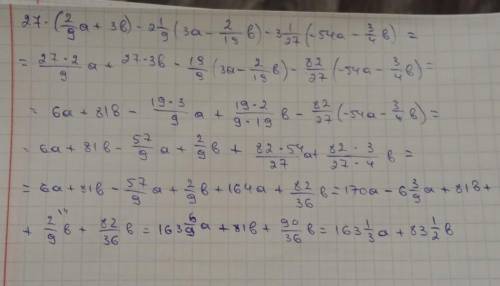 27·(2/9 а + 3в) - 2 1/9 (3а - 2/19 в) - 3 1/27 (-54а - 3/4 в) =
= 27·2/9 а + 27·3в - 19/9 (3а - 2/19 в) - 82/27 (-54а - 3/4 в) =
= 6а + 81в - 19·3/9 а + 19·2/9·19 в - 82/27 (-54а - 3/4 в) =
= 6а + 81в - 57/9 а + 2/9 в + 82·54/27 а + 82·3/27·4 в =
= 6а + 81в - 57/9 а + 2/9 в + 164а + 82/36 в = 170а - 6 3/9 а + 81в +
+ 2/9 в + 82/36 в = 163 6/9 а + 81в + 90/36 в = 163 1/3 а + 83 1/2 в